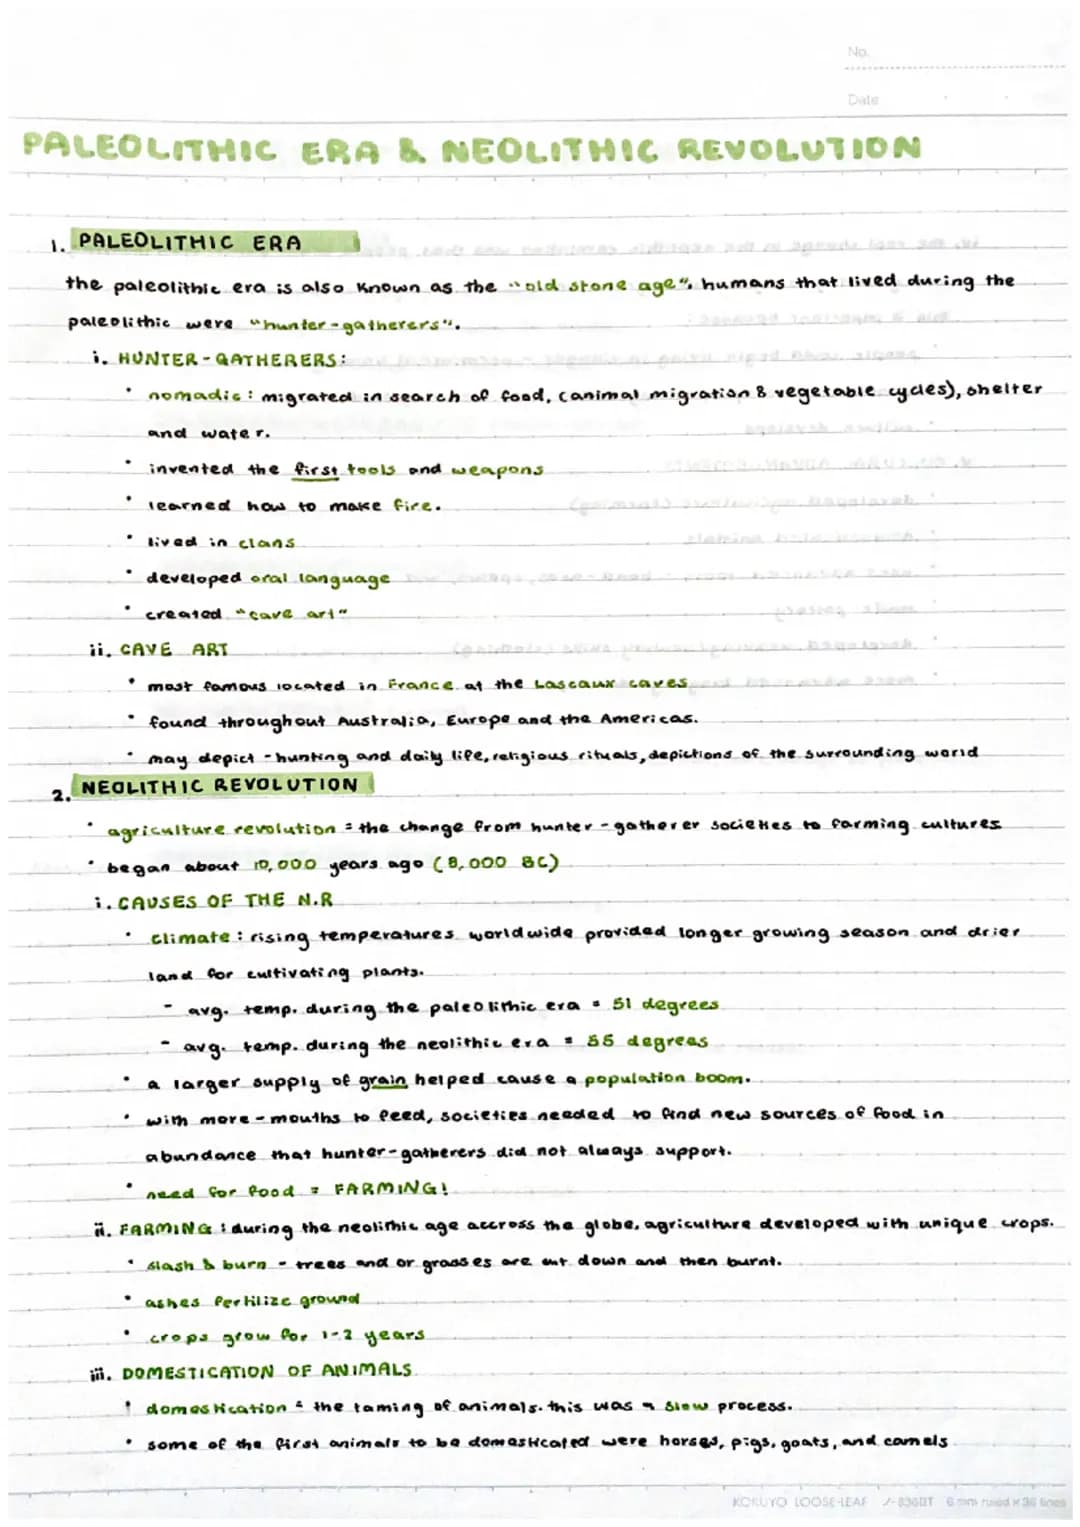 No.
Date
PALEOLITHIC ERA & NEOLITHIC REVOLUTION
1. PALEOLITHIC ERA
the paleolithic era is also known as the "old stone age", humans that lived during the
paleolithic were "hunter-gatherers".
i. HUNTER-GATHERERS:
• nomadic: migrated in search of food, (animal migration & vegetable cycles), shelter
and water.
• invented the first tools and weapons
• learned how to make fire.
• lived in clans
• developed oral language
• created "cave art"
ii. CAVE ART
• most famous located in France at the Lascaux caves
• found throughout Australia, Europe and the Americas.
• may depict - hunting and daily life, religious rituals, depictions of the surrounding world
2. NEOLITHIC REVOLUTION
• agriculture revolution = the change from hunter-gatherer societies to farming cultures
• began about 10,000 years ago (8,000 BC)
i. CAUSES OF THE N.R
• climate: rising temperatures worldwide provided longer growing season and drier
land for cultivating plants.
- avg. temp. during the paleolithic era = 51 degrees
- avg. temp. during the neolithic era = degrees
• a larger supply of grain helped cause a population boom.
• with more-mouths to feed, societies needed to find new sources of food in
abundance that hunter-gatherers did not always support.
• need for food = FARMING!
ii. FARMING: during the neolithic age accross the globe, agriculture developed with unique crops.
• slash & burn - trees and or grasses are cut down and then burnt.
• ashes fertilize ground
• crops grow for 1-2 years
iii. DOMESTICATION OF ANIMALS
• domestication = the taming of animals. this was a slow process.
• some of the first animals to be domesticated were horses, pigs, goats, and camels
KOKUYO LOOSE-LEAF 6 mm ruled × 36 lines